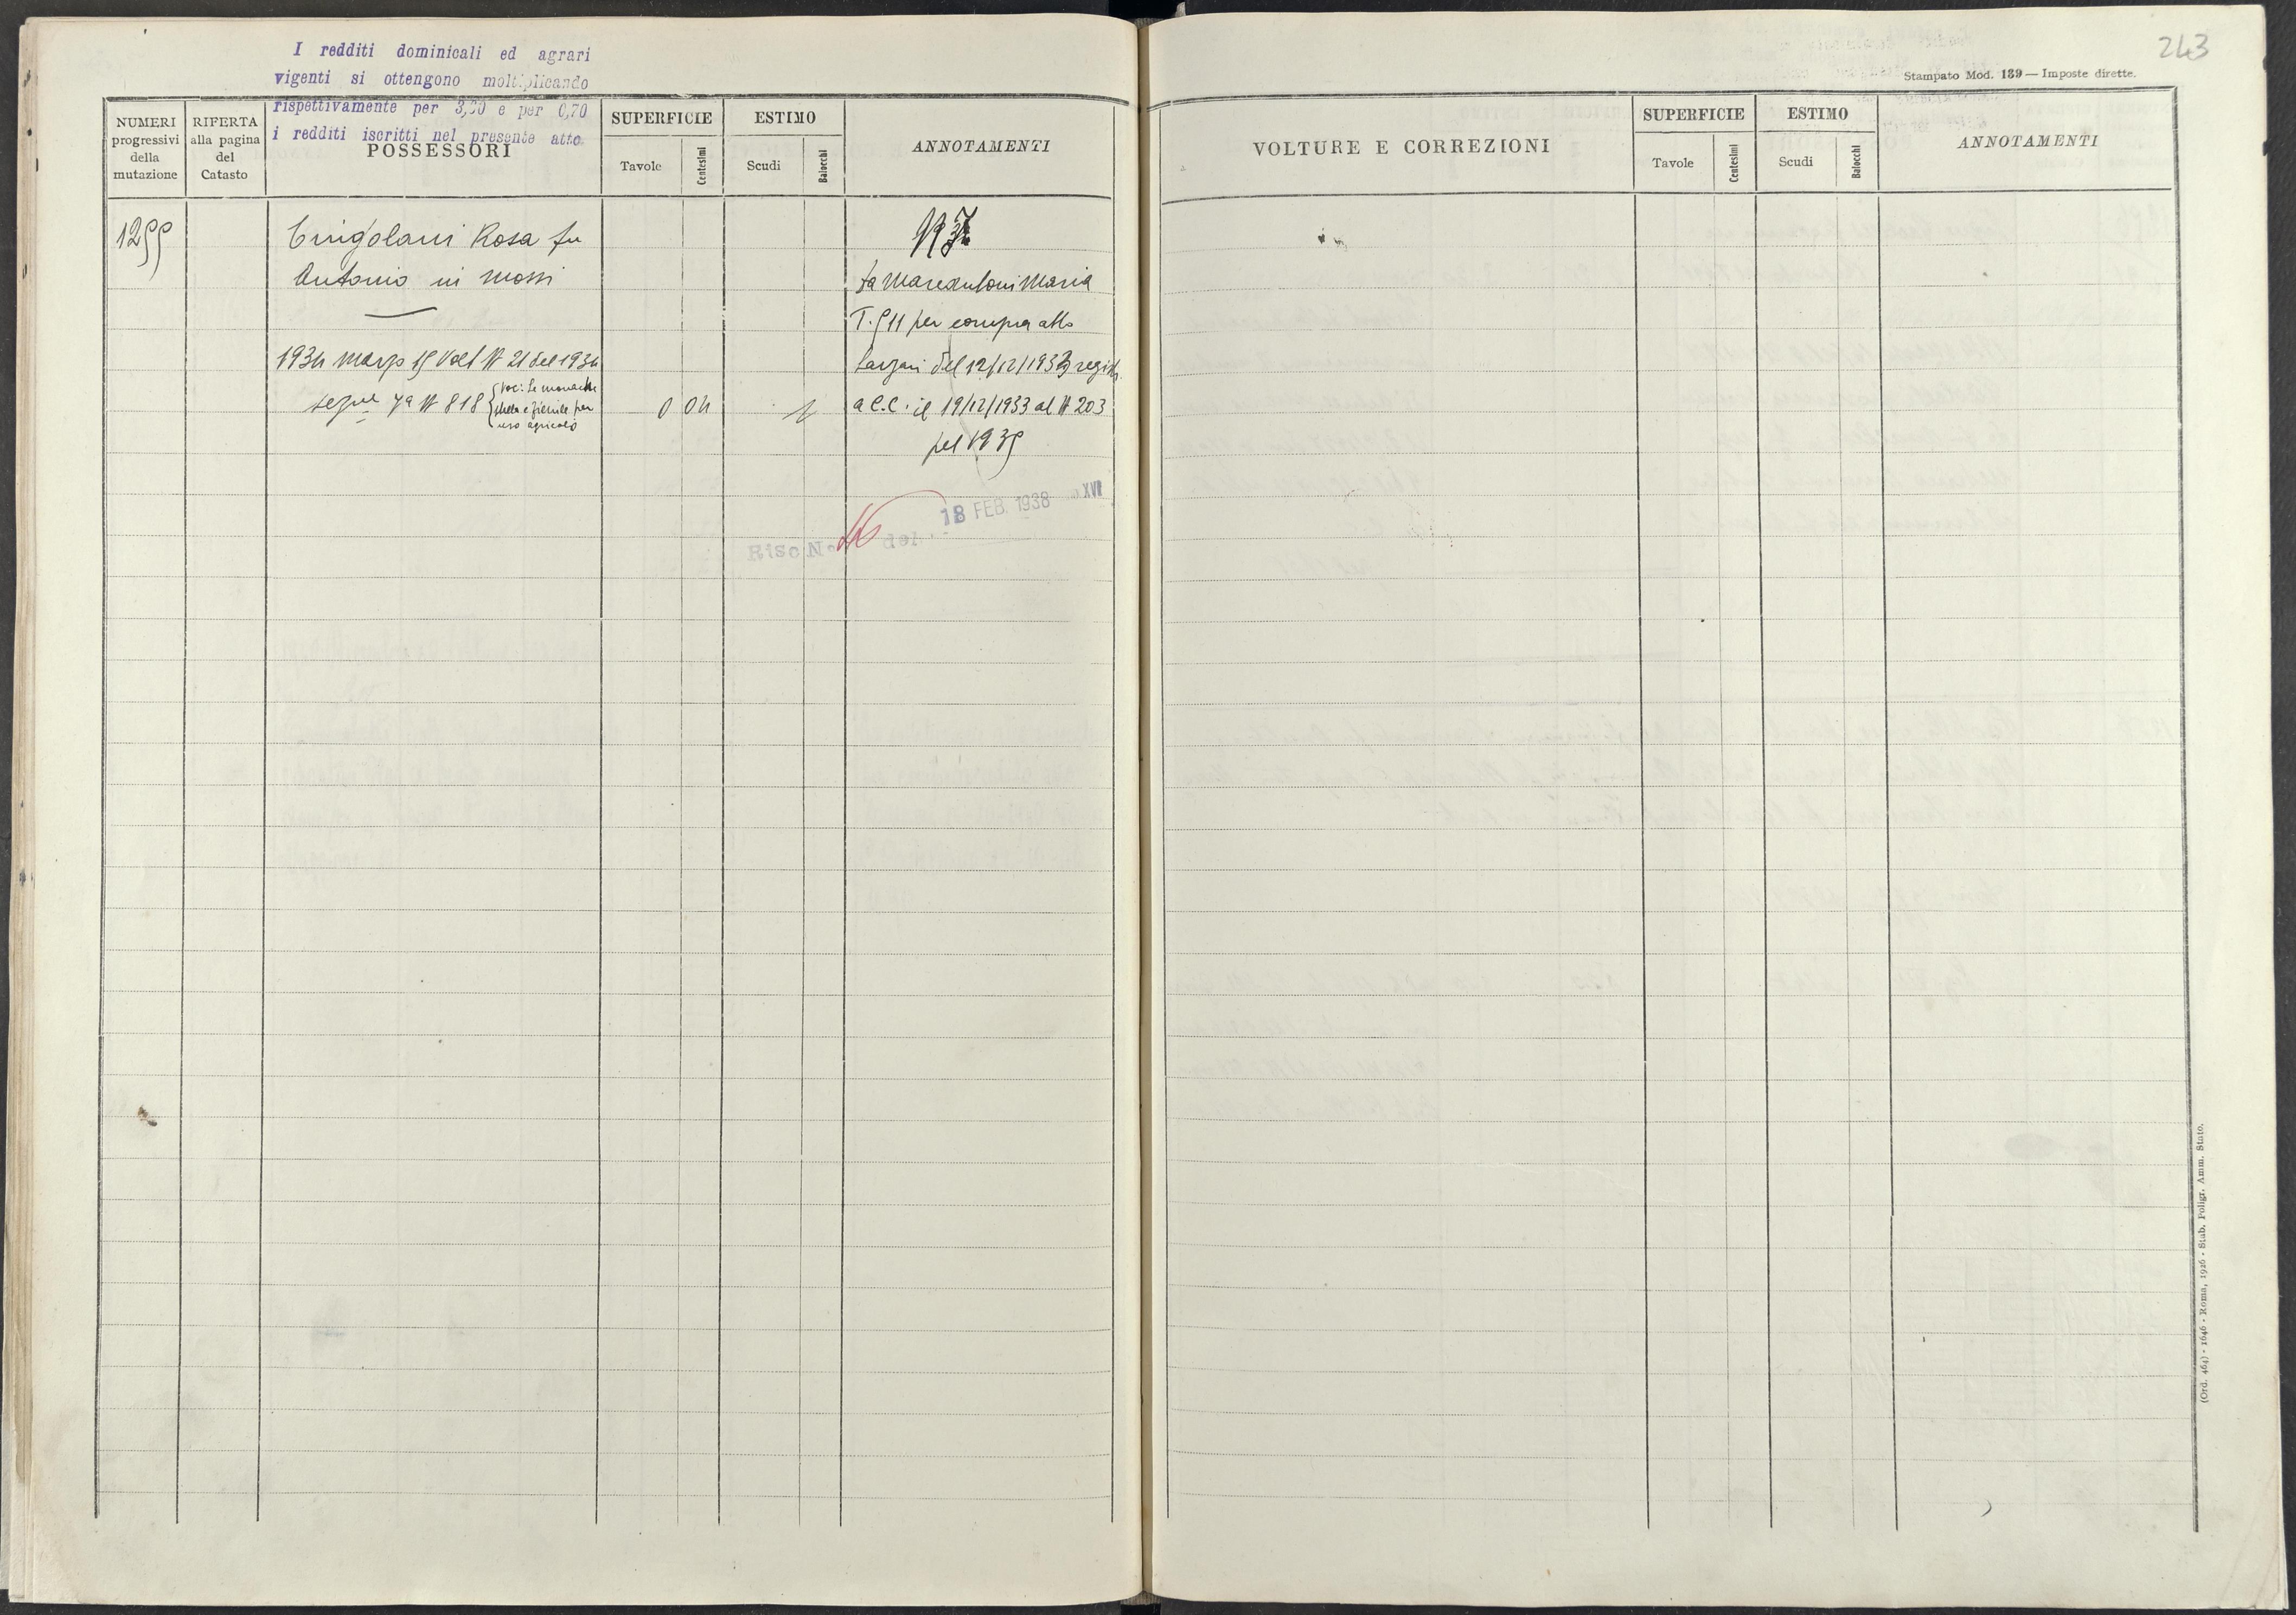 I redditi dominicali ed agrari
vigenti si ottengono moltiplicando
rispettivamente per 3,30 e per 0,70
i redditi iscritti nel presente atto.
NUMERI
progressivi
della
mutazione
RIFERTA
alla pagina
del
Catasto
POSSESSORI
SUPERFICIE
Tavole
Centesimi
ESTIMO
Scudi
Baiocchi
ANNOTAMENTI
1255
Cingolani Rosa fu
Antonio in Mossi
1934 marzo 15 Volt N 21 del 1934
sez 7a N 818
Voc: Le monache
stalla e fienile per
uso agricolo
0 04
1
1937
da Marcantoni Maria
T. 511 per compra atto
del 12/12/1933 regist.
a C.C. il 19/12/1933 al N 203
pel 1935
Risc No 16 del 18 FEB. 1938 XVI
243
Stampato Mod. 139 — Imposte dirette.
VOLTURE E CORREZIONI
SUPERFICIE
Tavole
Centesimi
ESTIMO
Scudi
Baiocchi
ANNOTAMENTI
(Ord. 464) - 1646 - Roma, 1926 - Stab. Poligr. Amm. Stato.